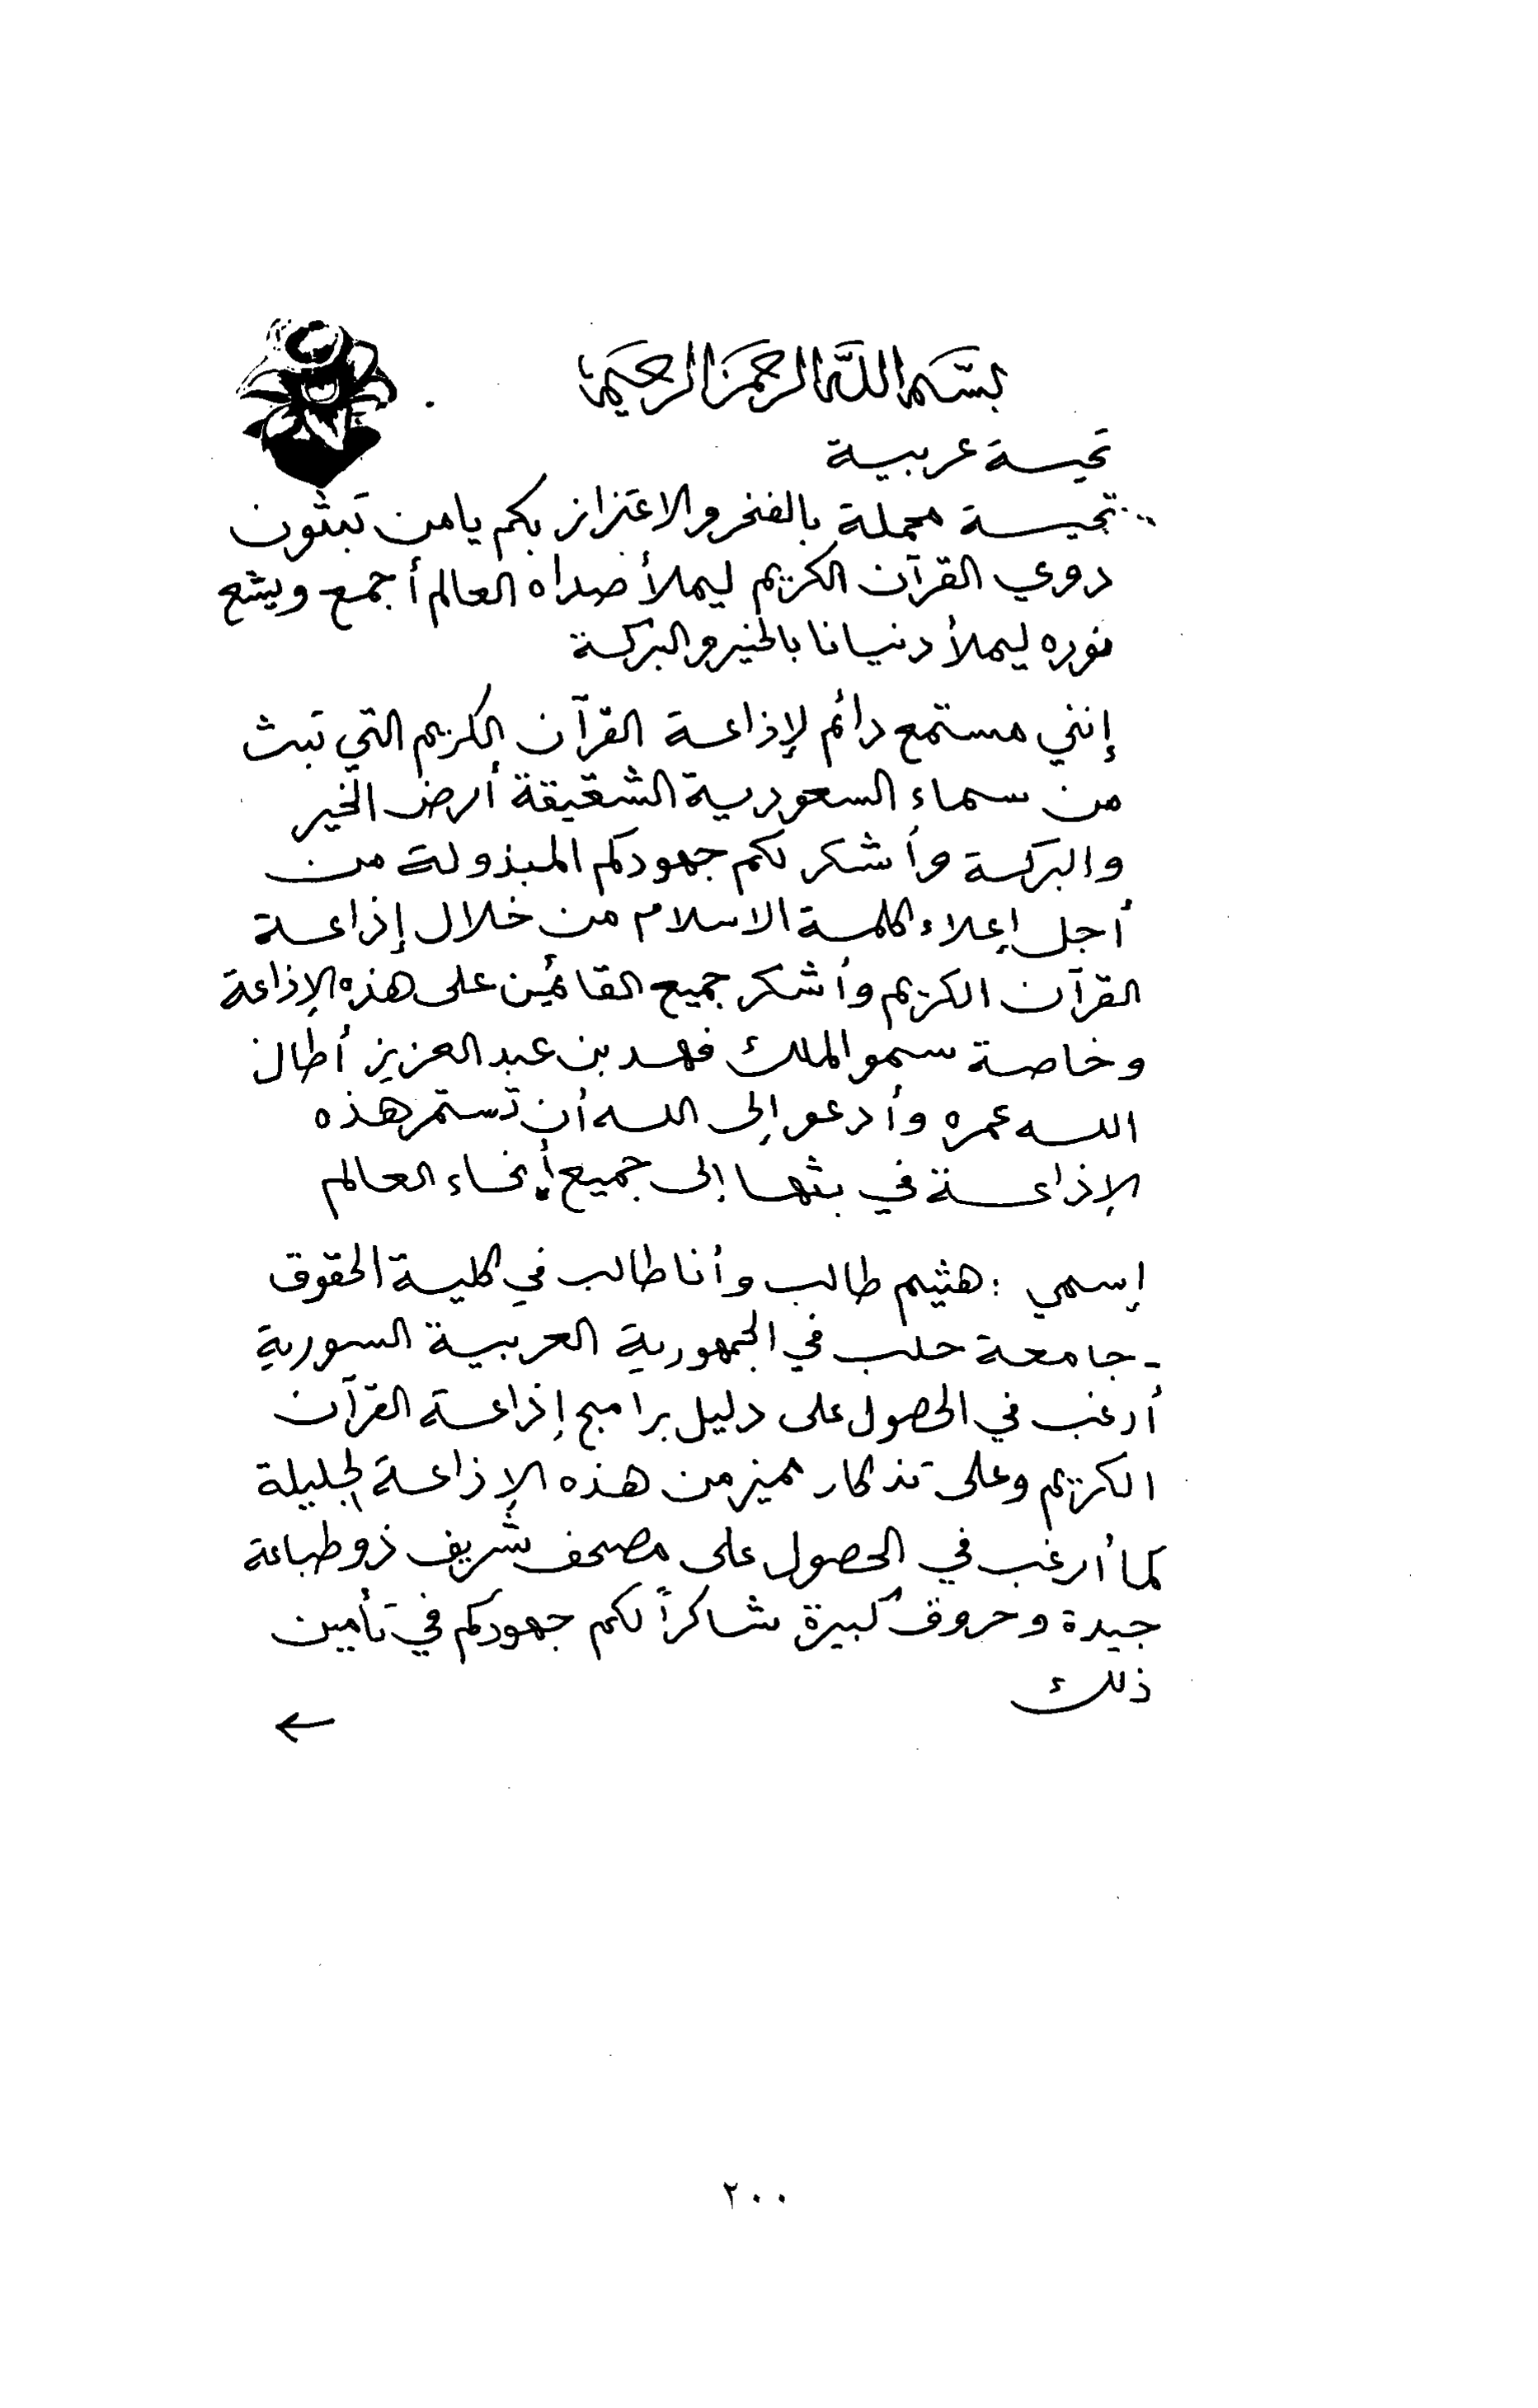 بسم الله الرحمن الرحيم
تحية عربية
تحية محملة بالفخر والاعتزاز بكم يا من تبثون
دوي القرآن الكريم ليملأ صداه العالم أجمع ويشع
نوره ليملأ دنيانا بالخير والبركة
إنني مستمع دائم لإذاعة القرآن الكريم التي تبث
من سماء السعودية الشقيقة أرض الخير
والبركة وأشكر لكم جهودكم المبذولة من
أجل إعلاء كلمة الاسلام من خلال إذاعة
القرآن الكريم وأشكر جميع القائمين على هذه الإذاعة
وخاصة سمو الملك فهد بن عبد العزيز أطال
الله عمره وأدعو إلى الله أن تستمر هذه
الإذاعة في بثها إلى جميع أنحاء العالم
إسمي : هثيم طالب وأنا طالب في كلية الحقوق
- جامعة حلب في الجمهورية العربية السورية
أرغب في الحصول على دليل برامج إذاعة القرآن
الكريم وعلى تذكار مميز من هذه الإذاعة الجليلة
كما أرغب في الحصول على مصحف شريف ذو طباعة
جيدة وحروف كبيرة شاكراً لكم جهودكم في تأمين
ذلك
←
٢٠٠